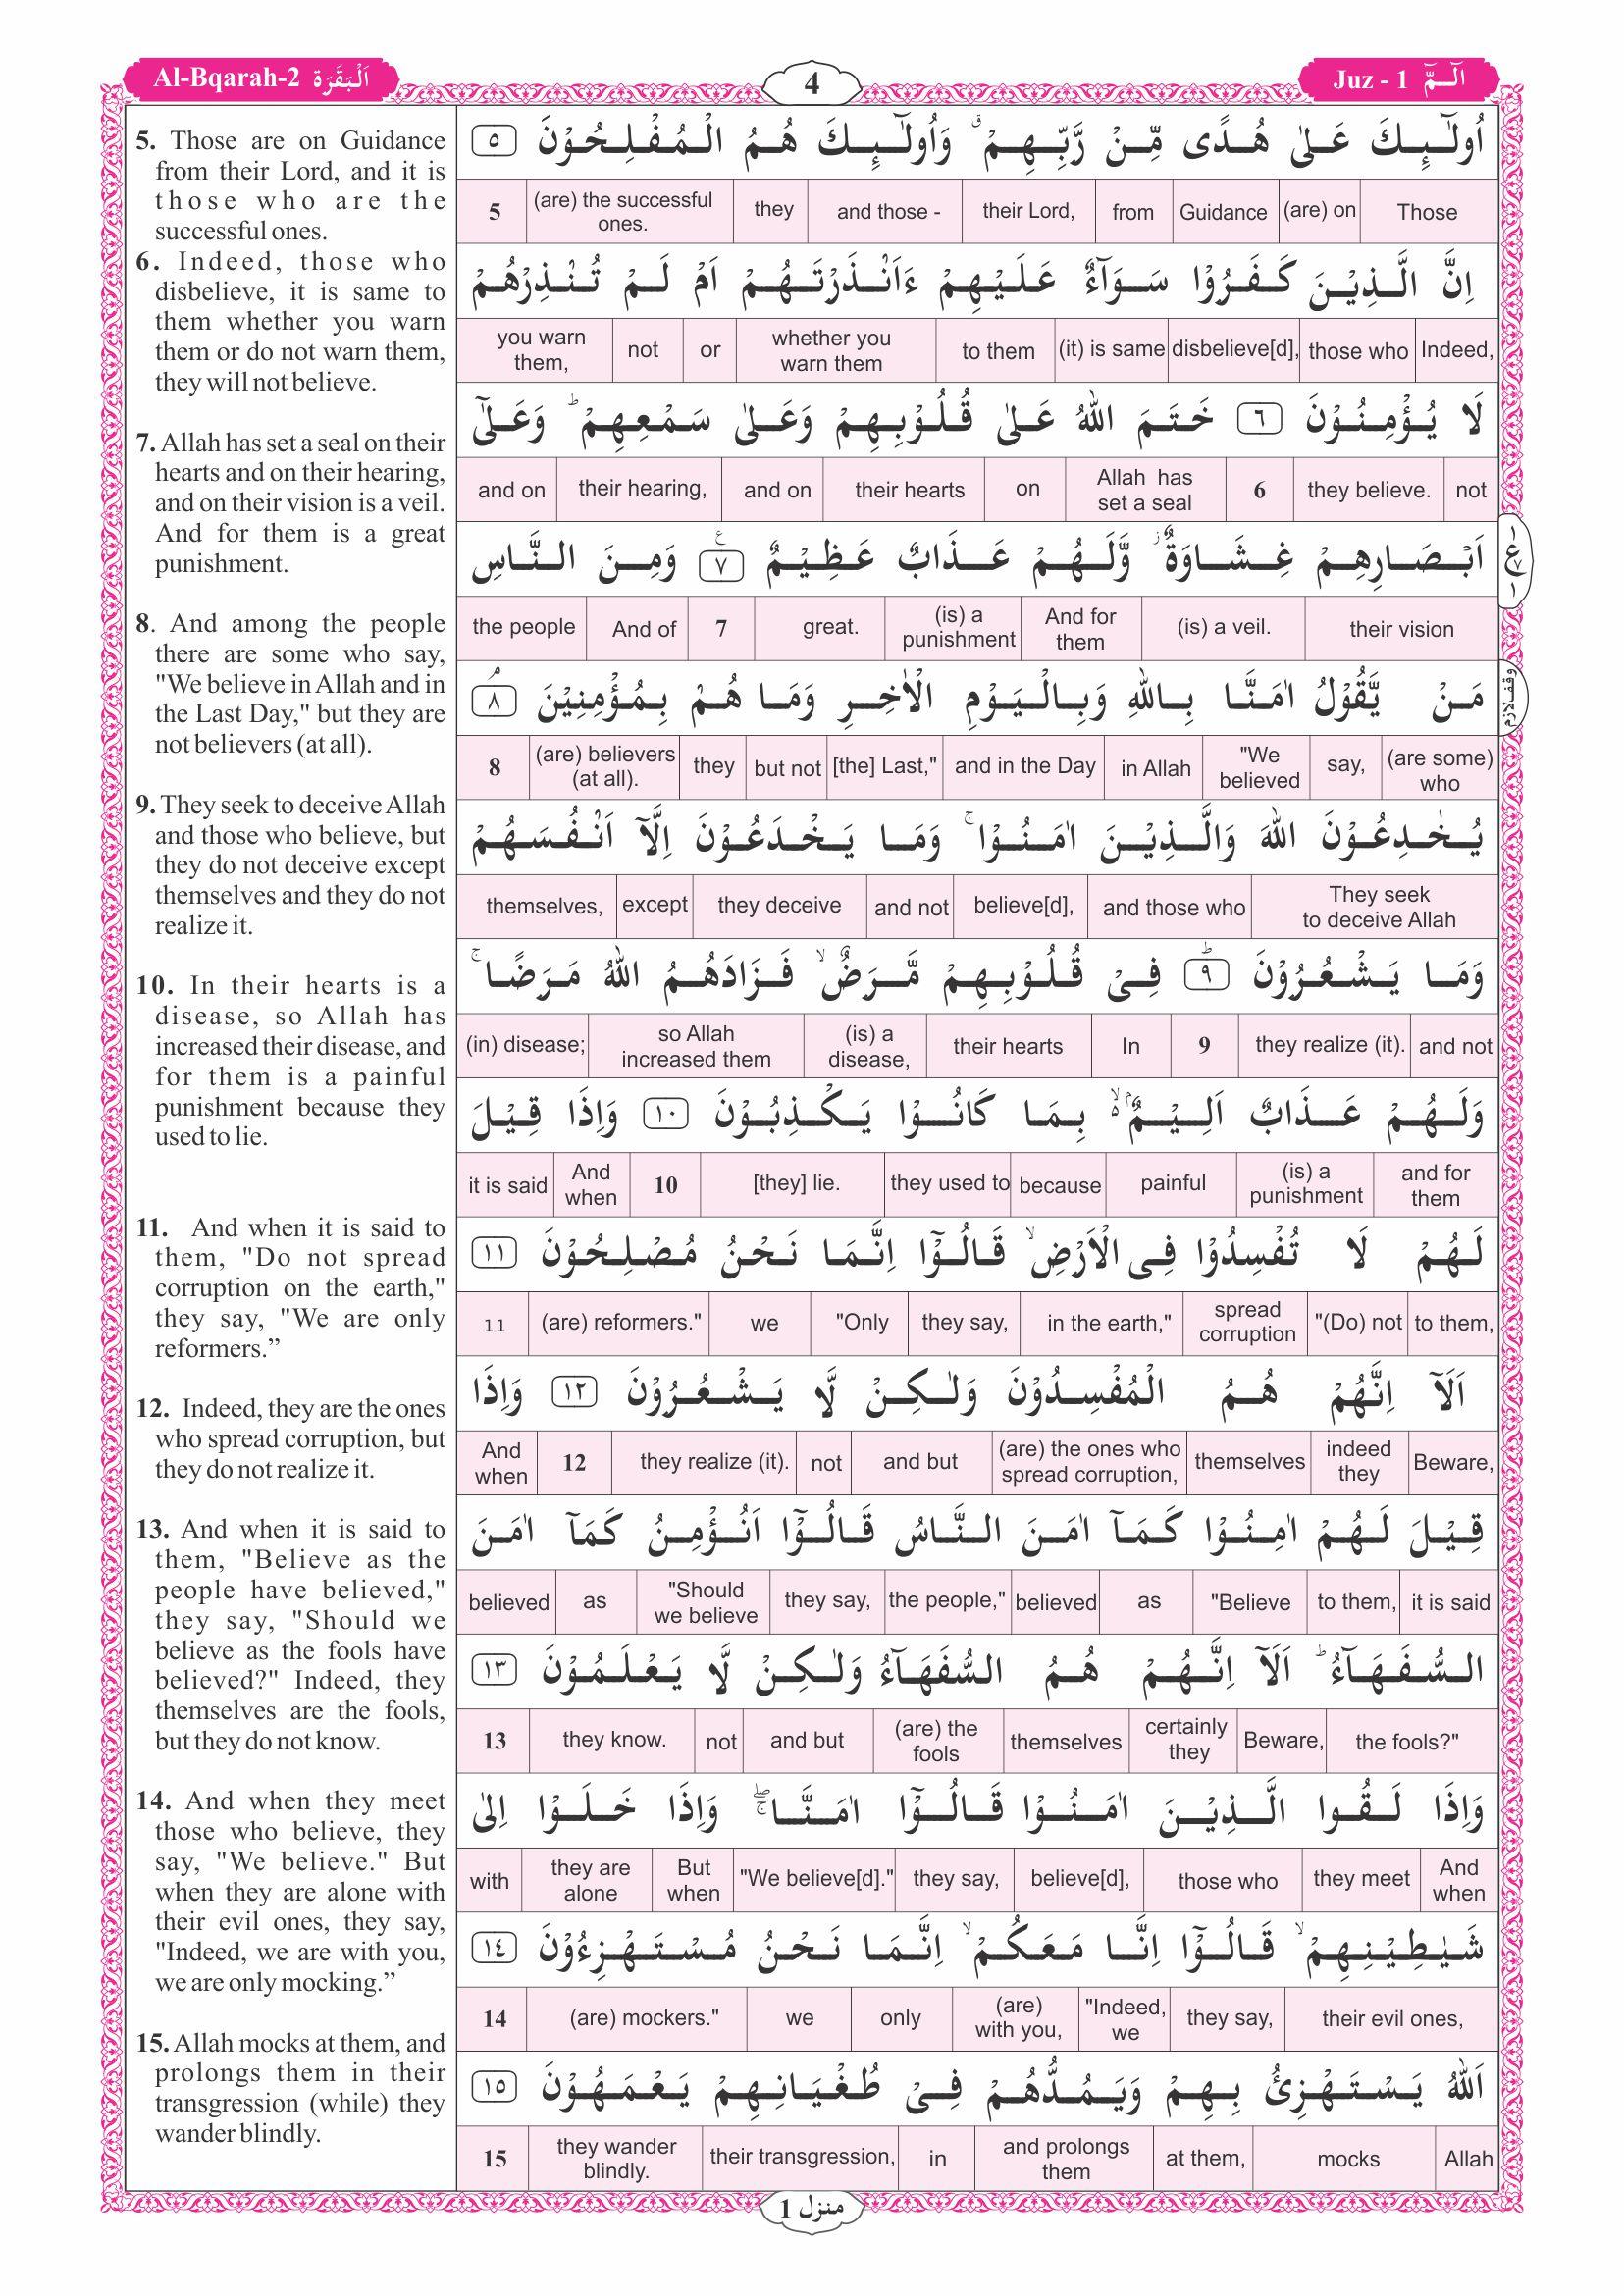 Al-Bqarah-2 اَلْبَقَرَة
4
Juz - 1 الٓمّٓ
5. Those are on Guidance
from their Lord, and it is
those who are the
successful ones.
6. Indeed, those who
disbelieve, it is same to
them whether you warn
them or do not warn them,
they will not believe.
7. Allah has set a seal on their
hearts and on their hearing,
and on their vision is a veil.
And for them is a great
punishment.
8. And among the people
there are some who say,
"We believe in Allah and in
the Last Day," but they are
not believers (at all).
9. They seek to deceive Allah
and those who believe, but
they do not deceive except
themselves and they do not
realize it.
10. In their hearts is a
disease, so Allah has
increased their disease, and
for them is a painful
punishment because they
used to lie.
11. And when it is said to
them, "Do not spread
corruption on the earth,"
they say, "We are only
reformers.”
12. Indeed, they are the ones
who spread corruption, but
they do not realize it.
13. And when it is said to
them, "Believe as the
people have believed,"
they say, "Should we
believe as the fools have
believed?" Indeed, they
themselves are the fools,
but they do not know.
14. And when they meet
those who believe, they
say, "We believe." But
when they are alone with
their evil ones, they say,
"Indeed, we are with you,
we are only mocking.”
15. Allah mocks at them, and
prolongs them in their
transgression (while) they
wander blindly.
اُولٰٓئِكَ عَلٰى هُدًى مِّنْ رَّبِّهِمْ ۗ وَاُولٰٓئِكَ هُمُ الْمُفْلِحُوْنَ ٥
Those (are) on Guidance from their Lord, and those - they (are) the successful ones. 5
اِنَّ الَّذِيْنَ كَفَرُوْا سَوَآءٌ عَلَيْهِمْ ءَاَنْذَرْتَهُمْ اَمْ لَمْ تُنْذِرْهُمْ
Indeed, those who disbelieve[d], (it) is same to them whether you warn them or not you warn them,
لَا يُؤْمِنُوْنَ ٦ خَتَمَ اللّٰهُ عَلٰى قُلُوْبِهِمْ وَعَلٰى سَمْعِهِمْ ؕ وَعَلٰٓى
not they believe. 6 Allah has set a seal on their hearts and on their hearing, and on
اَبْصَارِهِمْ غِشَاوَةٌ ؗ وَّلَهُمْ عَذَابٌ عَظِيْمٌ ٧ وَمِنَ النَّاسِ
their vision (is) a veil. And for them (is) a punishment great. 7 And of the people
مَنْ يَّقُوْلُ اٰمَنَّا بِاللّٰهِ وَبِالْيَوْمِ الْاٰخِرِ وَمَا هُمْ بِمُؤْمِنِيْنَ ٨
(are some) who say, "We believed in Allah and in the Day [the] Last," but not they (are) believers (at all). 8
يُخٰدِعُوْنَ اللّٰهَ وَالَّذِيْنَ اٰمَنُوْا ۚ وَمَا يَخْدَعُوْنَ اِلَّآ اَنْفُسَهُمْ
They seek to deceive Allah and those who believe[d], and not they deceive except themselves,
وَمَا يَشْعُرُوْنَ ٩ فِيْ قُلُوْبِهِمْ مَّرَضٌ ۙ فَزَادَهُمُ اللّٰهُ مَرَضًا ۚ
and not they realize (it). 9 In their hearts (is) a disease, so Allah increased them (in) disease;
وَلَهُمْ عَذَابٌ اَلِيْمٌ ۙ بِمَا كَانُوْا يَكْذِبُوْنَ ١٠ وَاِذَا قِيْلَ
and for them (is) a punishment painful because they used to [they] lie. 10 And when it is said
لَهُمْ لَا تُفْسِدُوْا فِى الْاَرْضِ ۙ قَالُوْٓا اِنَّمَا نَحْنُ مُصْلِحُوْنَ ١١
to them, "(Do) not spread corruption in the earth," they say, "Only we (are) reformers." 11
اَلَآ اِنَّهُمْ هُمُ الْمُفْسِدُوْنَ وَلٰكِنْ لَّا يَشْعُرُوْنَ ١٢ وَاِذَا
Beware, indeed they themselves (are) the ones who spread corruption, and but not they realize (it). 12 And when
قِيْلَ لَهُمْ اٰمِنُوْا كَمَآ اٰمَنَ النَّاسُ قَالُوْٓا اَنُؤْمِنُ كَمَآ اٰمَنَ
it is said to them, "Believe as believed the people," they say, "Should we believe as believed
السُّفَهَآءُ ؕ اَلَآ اِنَّهُمْ هُمُ السُّفَهَآءُ وَلٰكِنْ لَّا يَعْلَمُوْنَ ١٣
the fools?" Beware, certainly they themselves (are) the fools and but not they know. 13
وَاِذَا لَقُوا الَّذِيْنَ اٰمَنُوْا قَالُوْٓا اٰمَنَّا ۖۚ وَاِذَا خَلَوْا اِلٰى
And when they meet those who believe[d], they say, "We believe[d]." But when they are alone with
شَيٰطِيْنِهِمْ ۙ قَالُوْٓا اِنَّا مَعَكُمْ ۙ اِنَّمَا نَحْنُ مُسْتَهْزِءُوْنَ ١٤
their evil ones, they say, "Indeed, we (are) with you, only we (are) mockers." 14
اَللّٰهُ يَسْتَهْزِئُ بِهِمْ وَيَمُدُّهُمْ فِيْ طُغْيَانِهِمْ يَعْمَهُوْنَ ١٥
Allah mocks at them, and prolongs them in their transgression, they wander blindly. 15
١ ع ٧ ١
وقف لازم
منزل 1